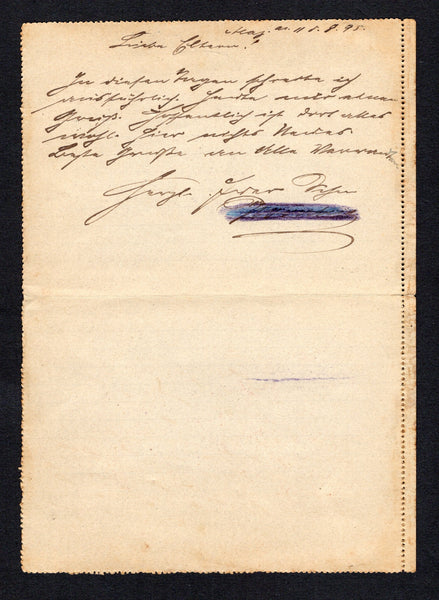 Liebe Eltern!
In diesen Tagen schreibe ich
ausführlich. Heute nur einen
Gruß. Hoffentlich ist dort alles
wohl. Hier nichts Neues
Beste Grüße an Alle Verwandten
Herzl. Euer Sohn